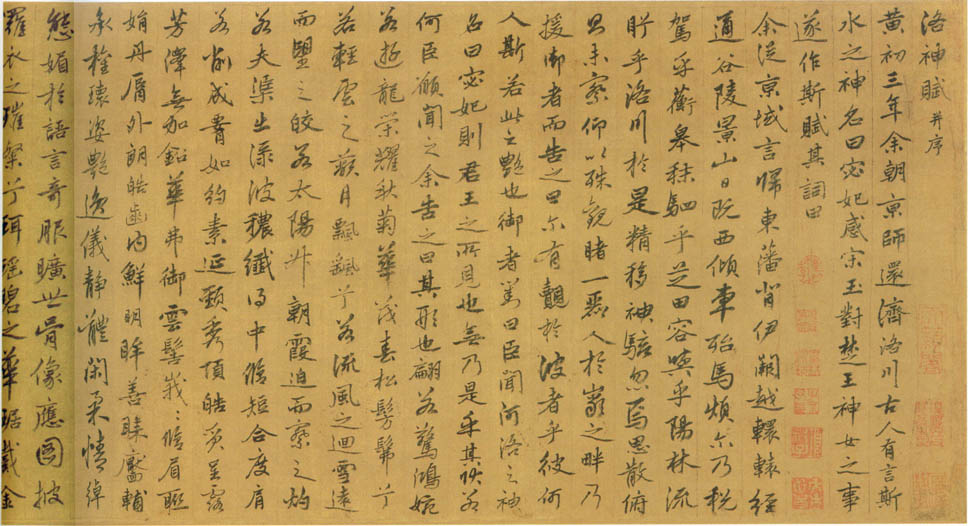 洛神賦 并序
黃初三年余朝京師還濟洛川古人有言斯
水之神名曰宓妃感宋玉對楚王神女之事
遂作斯賦其詞曰
余從京域言歸東藩背伊闕越轘轅經
通谷陵景山日既西傾車殆馬煩尒乃稅
駕乎蘅皋秣駟乎芝田容與乎陽林流
眄乎洛川於是精移神駭忽焉思散俯
則未察仰以殊觀睹一麗人於巖之畔乃
援御者而告之曰尒有覿於彼者乎彼何
人斯若此之艷也御者對曰臣聞河洛之神
名曰宓妃則君王之所見也無乃是乎其狀若
何臣願聞之余告之曰其形也翩若驚鴻婉
若遊龍榮耀秋菊華茂春松髣髴兮
若輕雲之蔽月飄颻兮若流風之迴雪遠
而望之皎若太陽升朝霞迫而察之灼
若夫渠出淥波穠纖得中脩短合度肩
若削成腰如約素延頸秀項皓質呈露
芳澤無加鉛華弗御雲髻峩〻脩眉聯
娟丹脣外朗皓齒內鮮明眸善睞靨輔
承權瓌姿艷逸儀靜體閑柔情綽
態媚於語言奇服曠世骨像應圖披
羅衣之璀粲兮珥瑤碧之華琚戴金